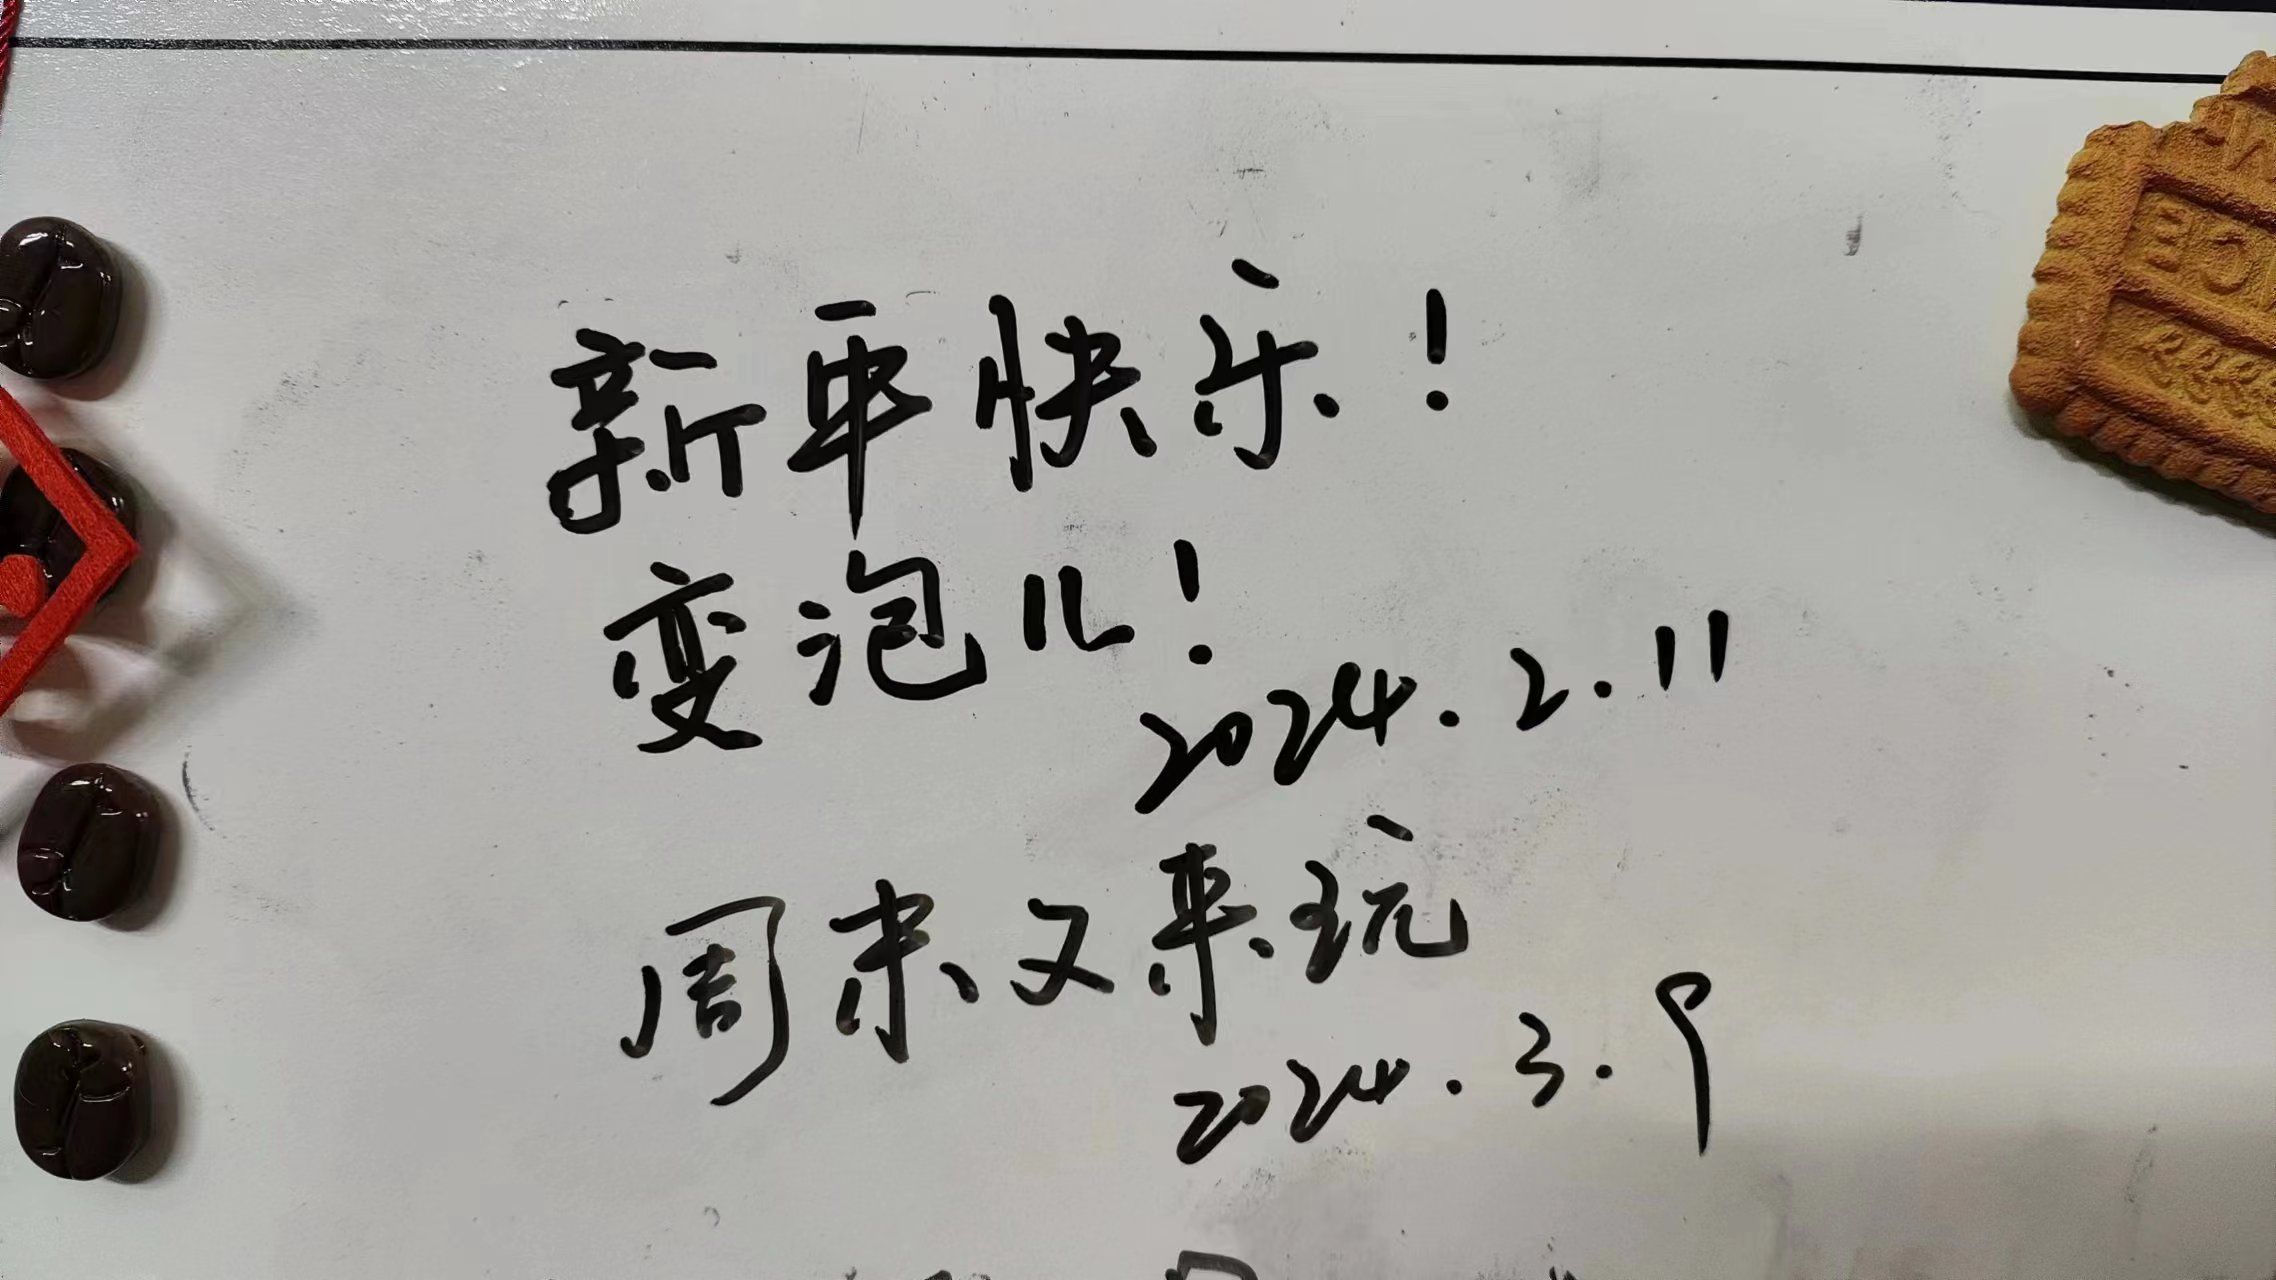 新年快乐！
变泡儿！
2024.2.11
周末又来玩
2024.3.9